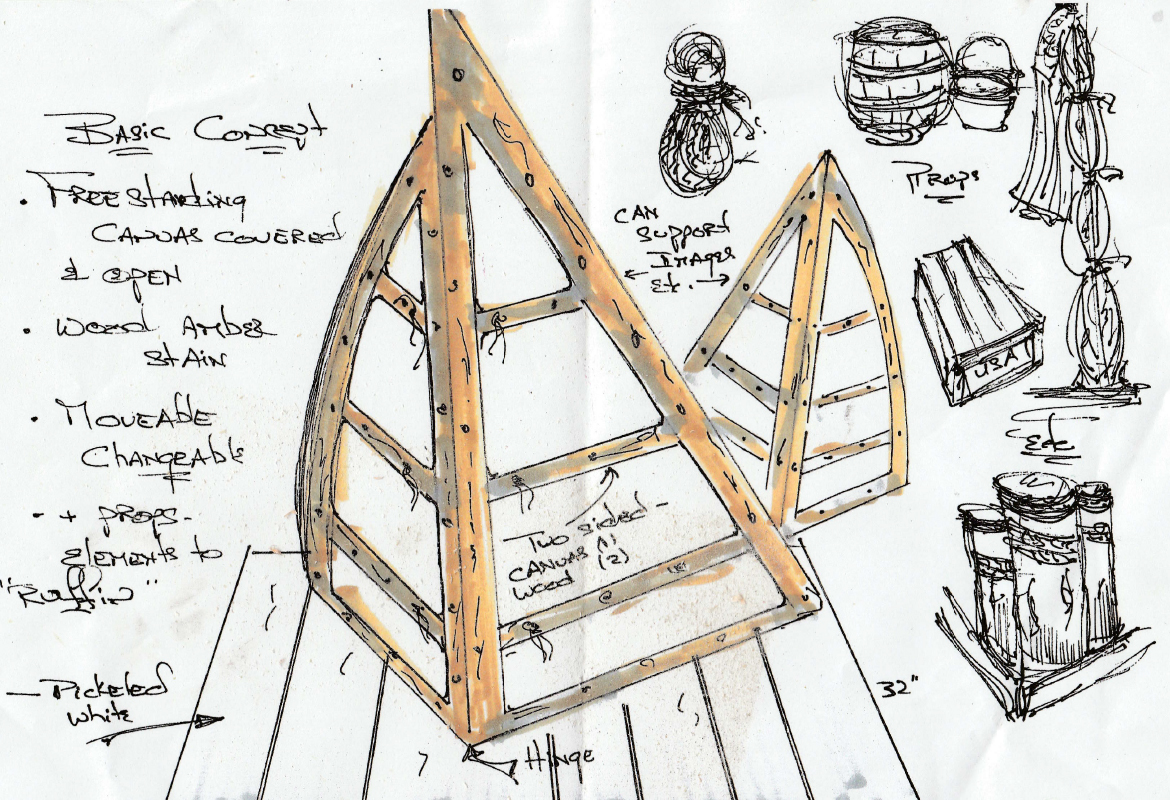 Basic Concept
• Freestanding
Canvas covered
& open
• Wood Amber
Stain
• Moveable
Changeable
- + props -
Elements to
"Ruffin"
- Pickeled
White
Hinge
Two sided -
Canvas (1)
Wood (2)
Can
Support
Images
Etc.
Props
USA
Etc
32"